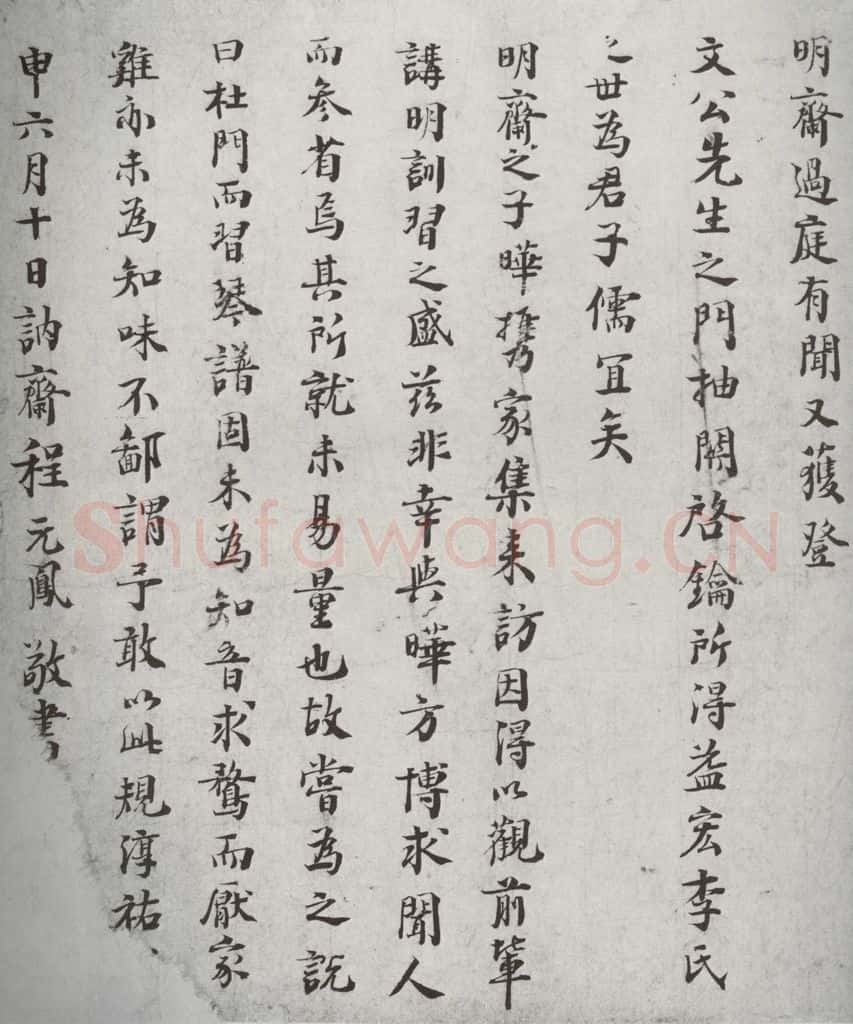 明齋過庭有聞又獲登
文公先生之門抽關啓鑰所得益宏李氏
之世為君子儒宜矣
明齋之子曄攜家集来訪因得以觀前輩
講明訓習之盛茲非幸與曄方博求聞人
而參省焉其所就未易量也故嘗為之說
曰杜門而習琴譜固未為知音求鶩而厭家
雞亦未為知味不鄙謂予敢以此規淳祐
申六月十日訥齋程元鳳敬書
Shufawang.CN